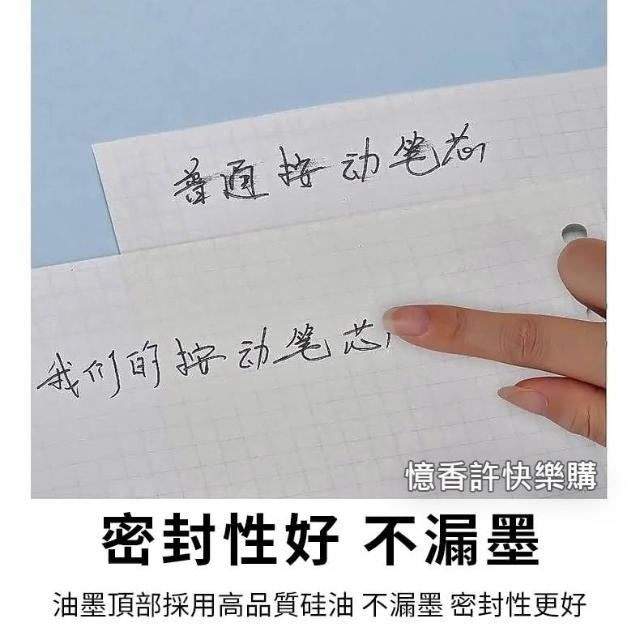 普通按动笔芯
我们的按动笔芯
憶香許快樂購
密封性好 不漏墨
油墨頂部採用高品質硅油 不漏墨 密封性更好